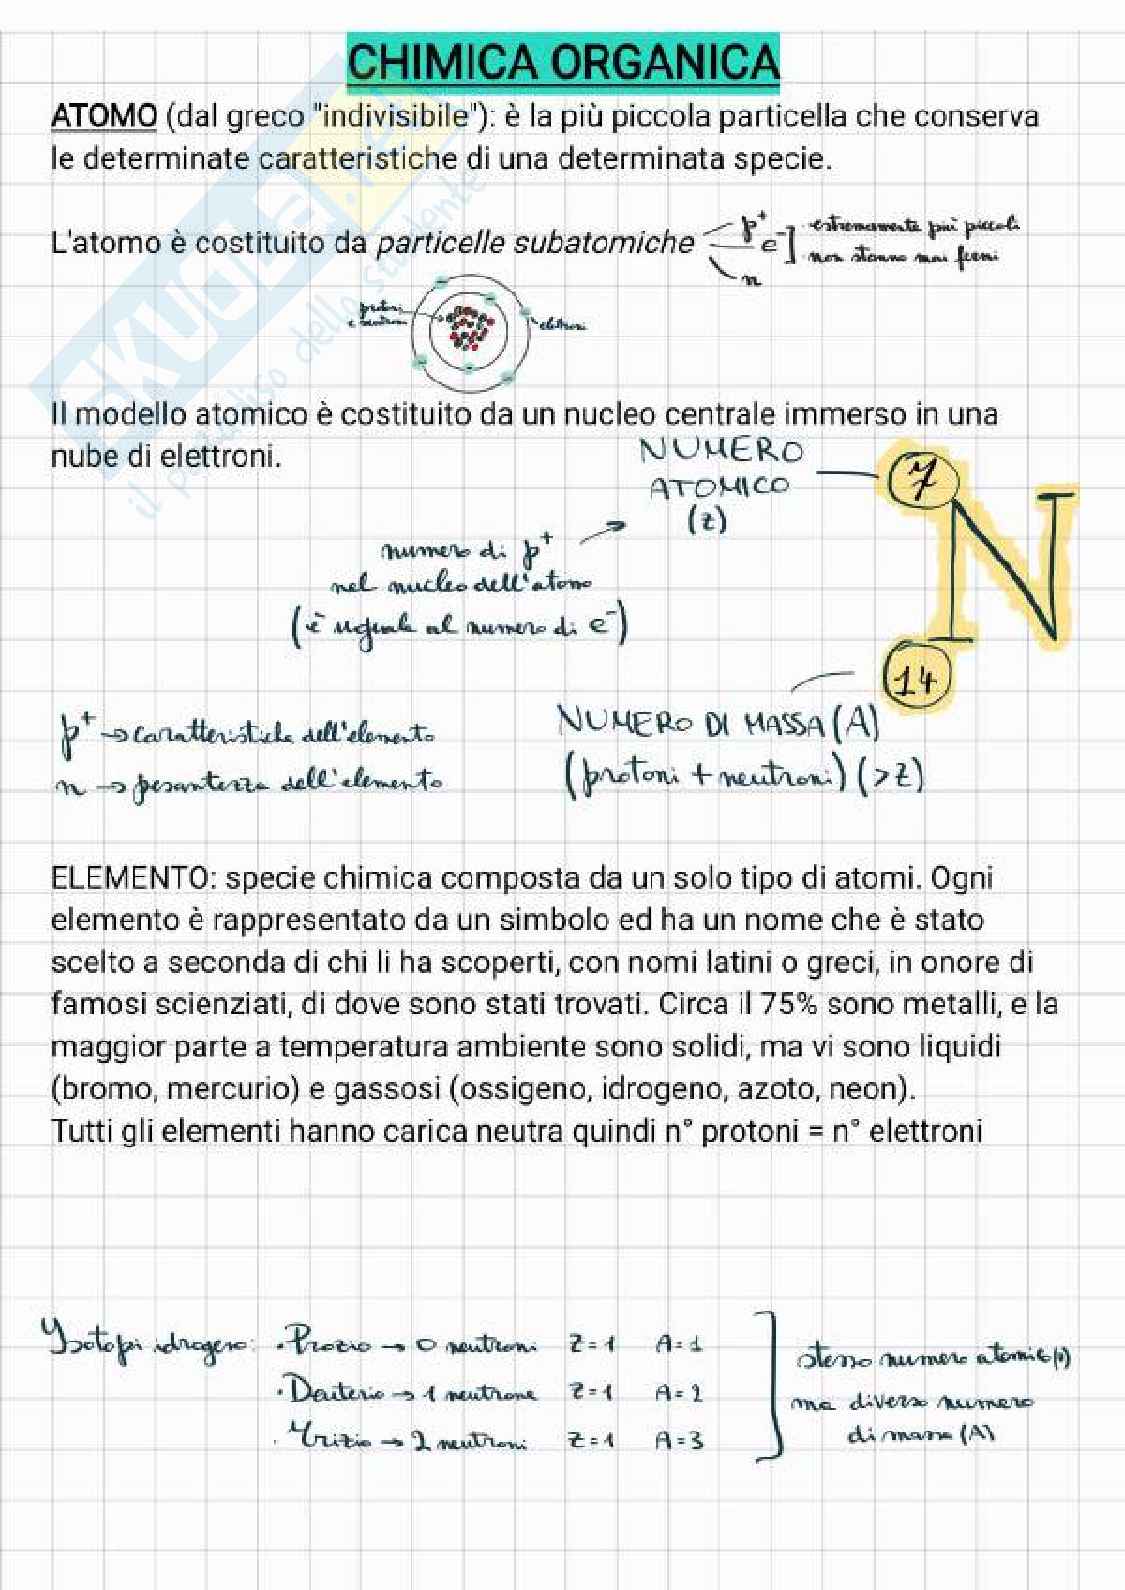 CHIMICA ORGANICA
ATOMO (dal greco "indivisibile"): è la più piccola particella che conserva
le determinate caratteristiche di una determinata specie.
L'atomo è costituito da particelle subatomiche
p+
e-
n
estremamente più piccoli
non stanno mai fermi
protoni
e neutroni
elettroni
Il modello atomico è costituito da un nucleo centrale immerso in una
nube di elettroni.
NUMERO
ATOMICO
(z)
7
N
14
numero di p+
nel nucleo dell'atomo
(è uguale al numero di e-)
p+ → caratteristiche dell'elemento
n → pesantezza dell'elemento
NUMERO DI MASSA (A)
(protoni + neutroni) (>Z)
ELEMENTO: specie chimica composta da un solo tipo di atomi. Ogni
elemento è rappresentato da un simbolo ed ha un nome che è stato
scelto a seconda di chi li ha scoperti, con nomi latini o greci, in onore di
famosi scienziati, di dove sono stati trovati. Circa il 75% sono metalli, e la
maggior parte a temperatura ambiente sono solidi, ma vi sono liquidi
(bromo, mercurio) e gassosi (ossigeno, idrogeno, azoto, neon).
Tutti gli elementi hanno carica neutra quindi n° protoni = n° elettroni
Isotopi idrogeno: · Prozio → 0 neutroni Z=1 A=1
· Deuterio → 1 neutrone Z=1 A=2
· Trizio → 2 neutroni Z=1 A=3
stesso numero atomico
ma diverso numero
di massa (A)
SKUOLA.net
il paradiso dello studente